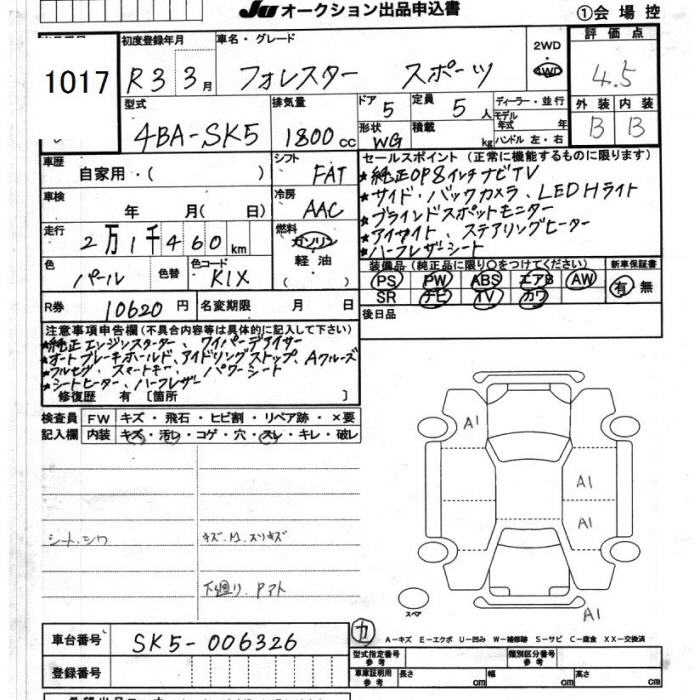 JU オークション出品申込書 ①会場控
初度登録年月 車名・グレード 2WD 4WD 評価点
1017 R3 3月 フォレスター スポーツ 4.5
型式 排気量 ドア 5 定員 5人 ディーラー・並行 外装 内装
4BA-SK5 1800cc 形状 WG 積載 kg モデル年式 年 ハンドル 左・右 B B
車歴 自家用・( ) シフト FAT
セールスポイント (正常に機能するものに限ります)
★純正OP8インチナビTV
★サイド・バックカメラ、LEDHライト
★ブラインドスポットモニター
★アイサイト、ステアリングヒーター
★ハーフレザーシート
車検 年 月( 日) 冷房 AAC
走行 2万1千460km 燃料 ガソリン 軽油 ( )
色 パール 色替 色コード K1X
装備品 (純正品に限り○をつけてください) 新車保証書
PS PW ABS エアB AW 有 無
SR ナビ TV カワ
R券 10620円 名変期限 月 日
後日品
注意事項申告欄 (不具合内容等は具体的に記入して下さい)
★純正エンジンスターター、ワイパーデアイサー
★オートブレーキホールド、アイドリングストップ、Aクルーズ
★フルセグ、スマートキー、パワーシート
★シートヒーター、ハーフレザー
修復歴 有 [箇所 ]
検査員 FW キズ・飛石・ヒビ割・リペア跡・×要
記入欄 内装 キズ・汚レ・コゲ・穴・スレ・キレ・破レ
A1
A1
A1
シート、シワ
キズ、
下廻り、Pアト
スペア
A1
カ A-キズ E-エクボ U-凹み W-補修跡 S-サビ C-腐食 XX-交換済
車台番号 SK5-006326
型式指定番号 参考 類別区分番号 参考
登録番号
車庫証明用 参考 長さ cm 幅 cm 高さ cm